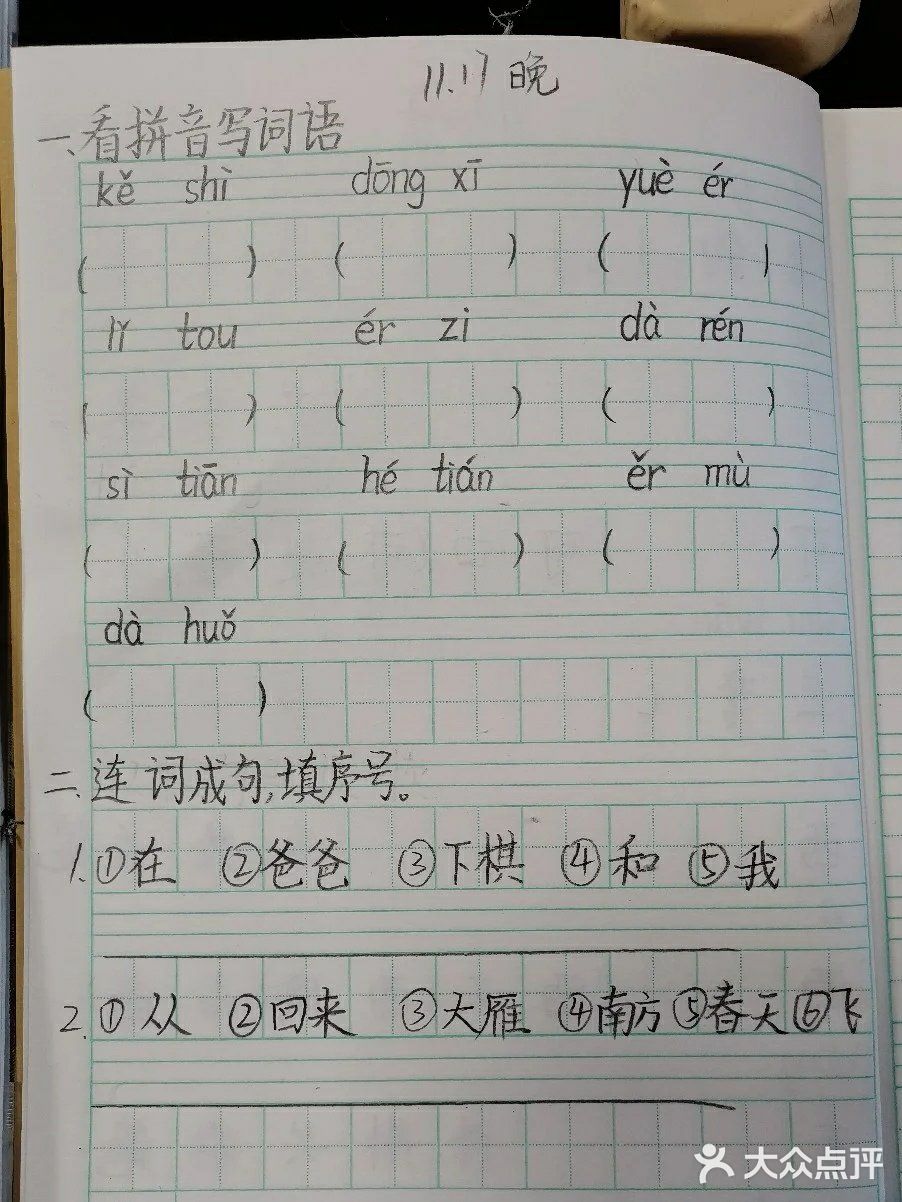 11.17 晚
一、看拼音写词语
kě shì dōng xī yuè ér
( ) ( ) ( )
lǐ tou ér zi dà rén
( ) ( ) ( )
sì tiān hé tián ěr mù
( ) ( ) ( )
dà huǒ
( )
二、连词成句,填序号。
1.①在 ②爸爸 ③下棋 ④和 ⑤我
2.①从 ②回来 ③大雁 ④南方 ⑤春天 ⑥飞
大众点评